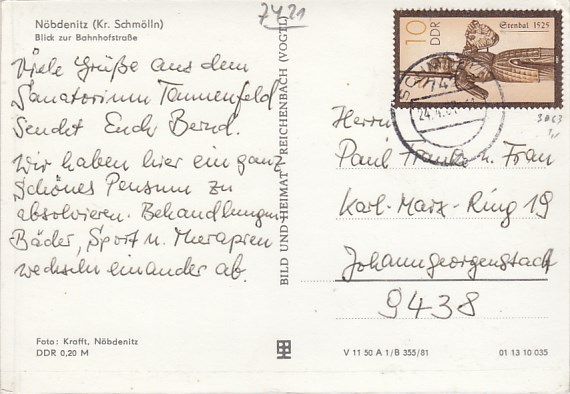 Nöbdenitz (Kr. Schmölln)
Blick zur Bahnhofstraße
7421
Viele Grüße aus dem
Sanatorium Tannenfeld
sendet Euch Bernd.
Wir haben hier ein ganz
schönes Pensum zu
absolvieren. Behandlungen,
Bäder, Sport u. Therapien
wechseln einander ab.
Foto: Krafft, Nöbdenitz
DDR 0,20 M
BILD UND HEIMAT REICHENBACH (VOGTL)
10
DDR
Stendal 1525
Herrn
Paul Franke u. Frau
Karl-Marx-Ring 19
Johanngeorgenstadt
9438
V 11 50 A 1/B 355/81
01 13 10 035